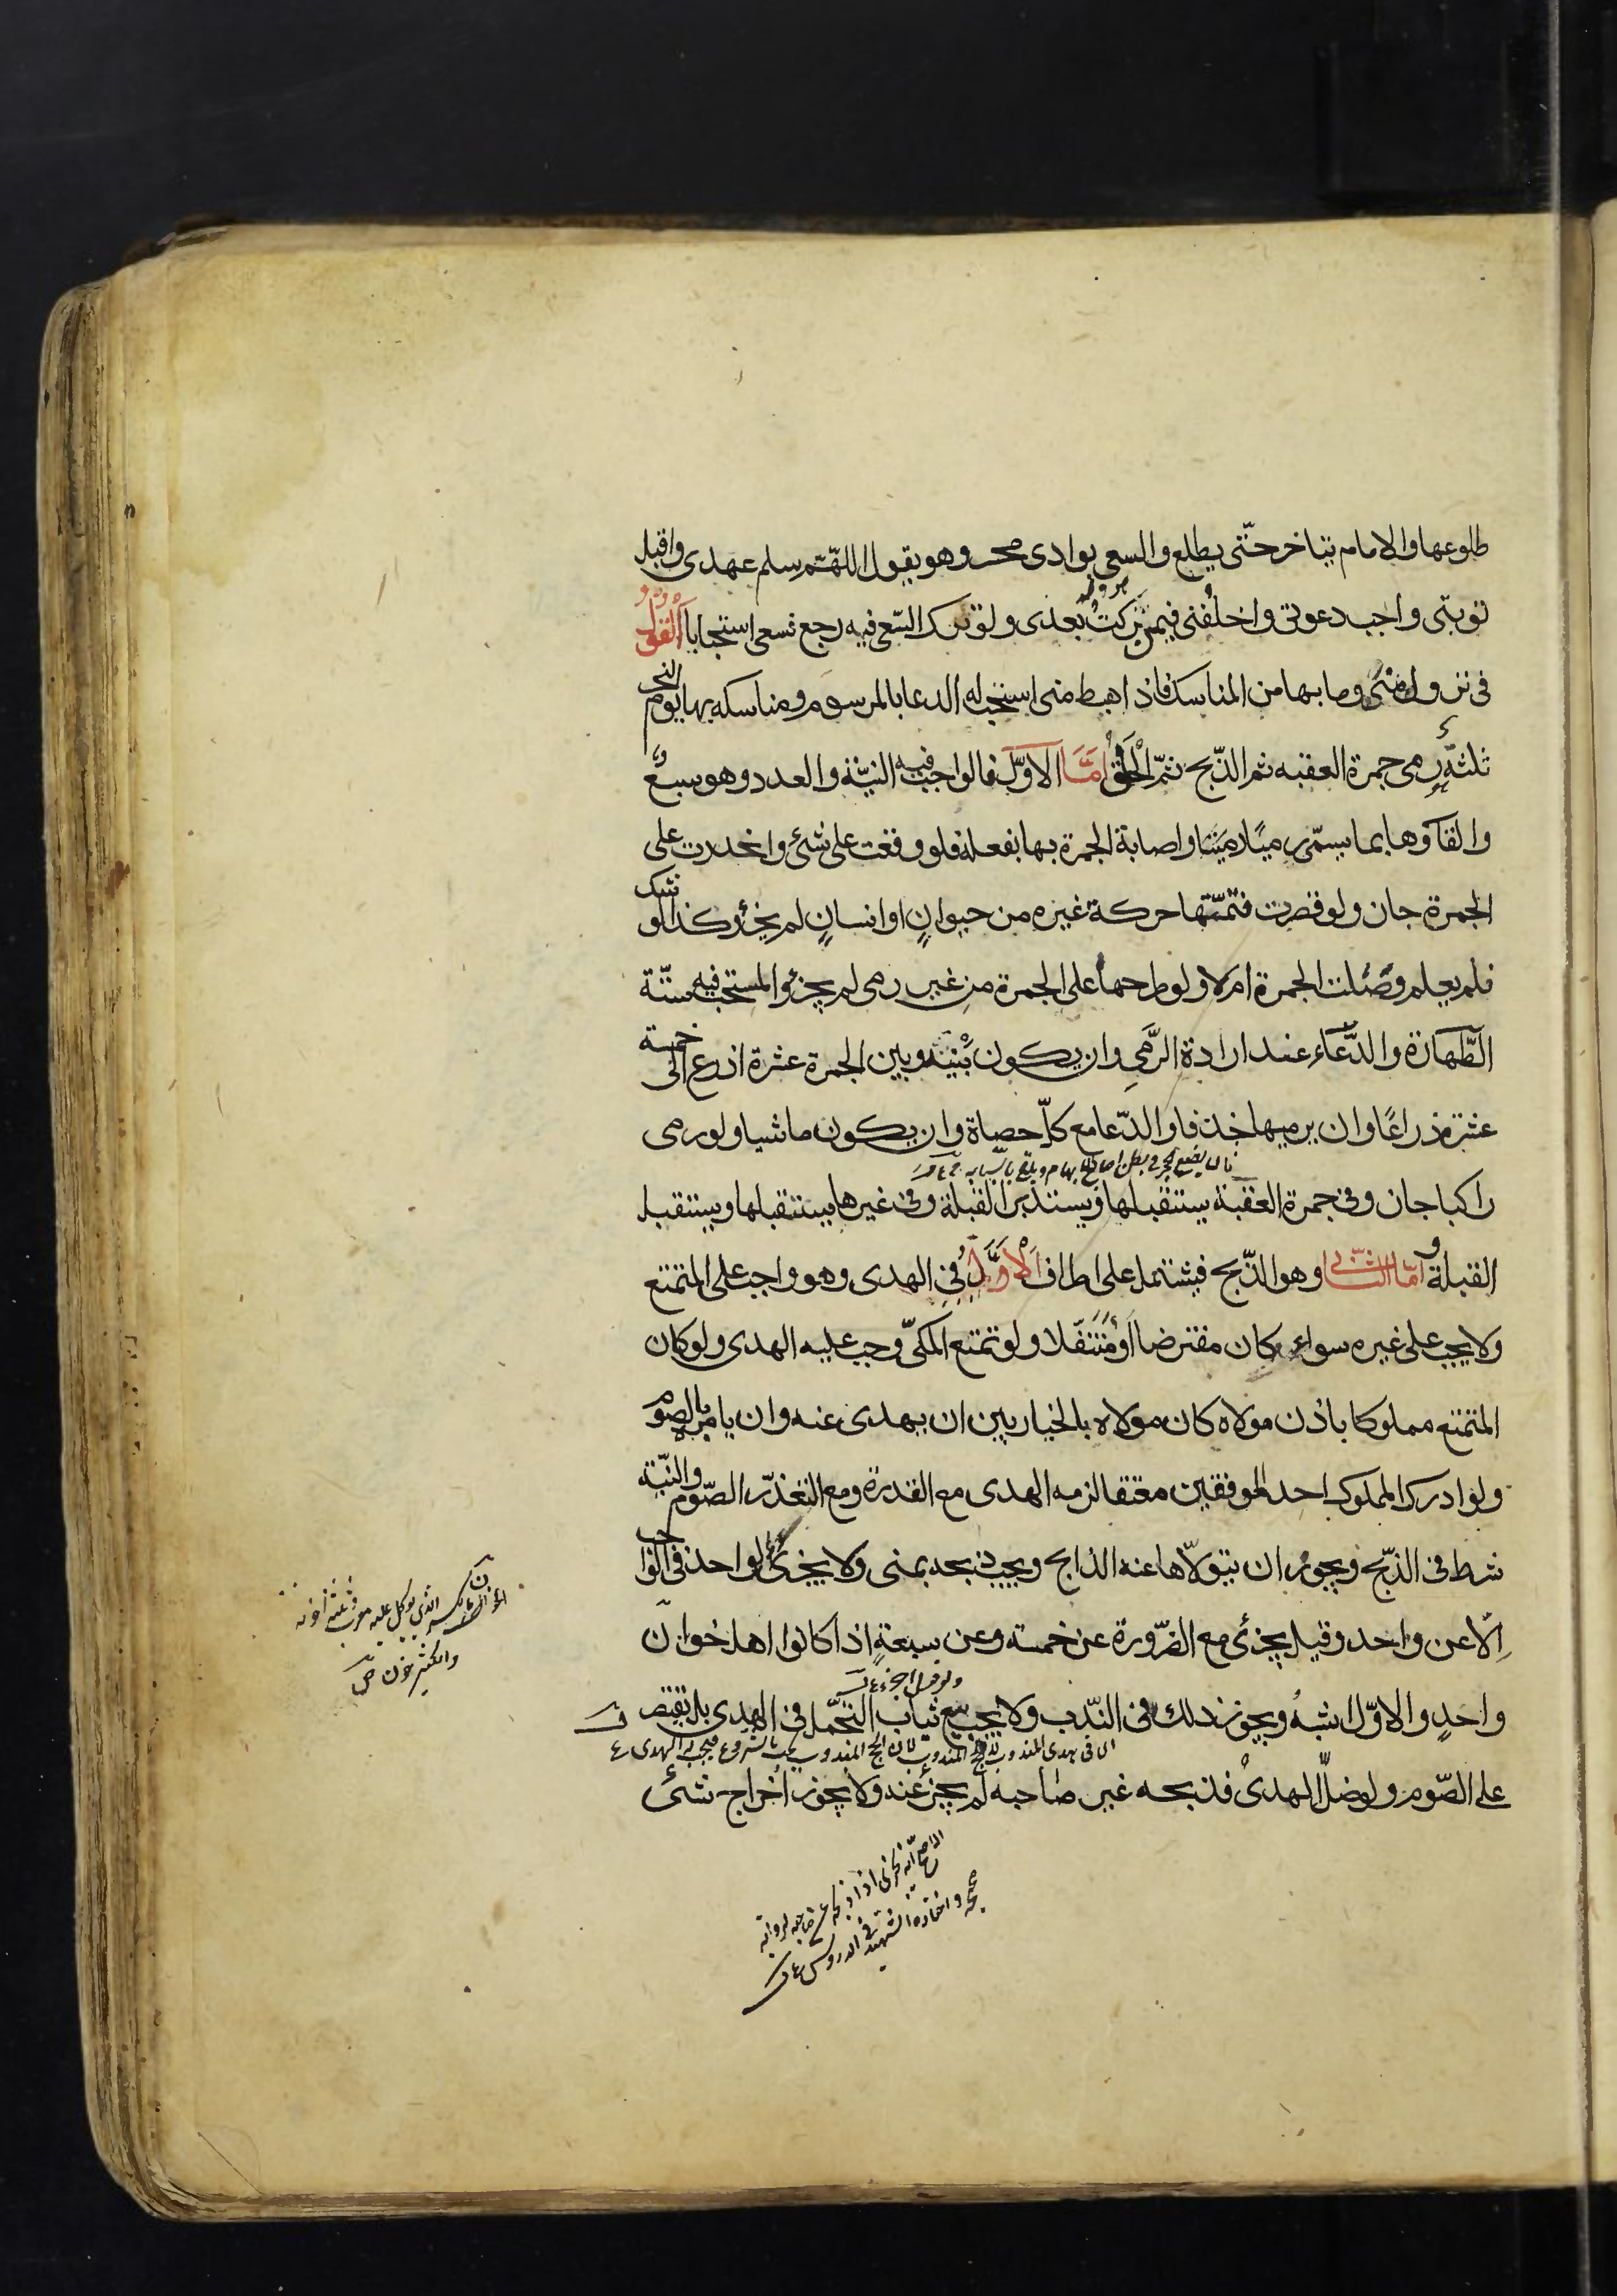 طلوعها والامام يتاخر حتّى يطلع والسعى بوادى محسر وهو يقول اللهّم سلم عهدى واقبل
توبتى واجب دعوتى واخلُفنى فيمن تركتُ بعدى ولو ترك السّعى فيه رجع فسعى استحبابا اَلْقَوْلُ
فى نزول منًى وما بها من المناسك فاذا هبط منى استحب له الدعا بالمرسوم ومناسكه بها يوم النحر
ثلثة رمى جمرة العقبه ثم الذّبح ثمّ الْحَلْقُ اَمَّا الاوّل فالواجب فيه النيّة والعدد وهو سبعٌ
والقآؤها بما يسمّى رميًا واصابة الجمرة بها بفعله فلو وقعت على شئ وانحدرت على
الجمرة جاز ولو قصرت فتمّمتها حركة غيره من حيوانٍ او انسانٍ لم يجزْ وكذا لو شك
فلم يعلم وَصَلت الجمرة ام لا ولو طرحها على الجمرة من غير رمى لم يجزئ والمستحب فيه ستّة
الطّهارة والدُّعاء عند ارادة الرَّمىِ وان يكون بَيْنَه وبين الجمرة عشرة اذرع الى خمسة
عشر ذراعًا وان يرميها خذفا والدّعا مع كلّ حصاة وان يكون ماشيا ولو رمى
راكبا جاز وفى جمرة العقبة يستقبلها ويستدبر القبلة وفى غيرها يستقبلها ويستقبل
القبلة و اَمّا الثّانى وهو الذّبح فيشتمل على اطراف اَلْاَوَّلُ فِى الهدى وهو واجب على المتمتع
ولا يجب على غيره سواء كان مفترضا اَوْ مُتَنَفّلا ولو تمتع المكىّ وجب عليه الهدى ولو كان
المتمتع مملوكا باذن مولاه كان مولاه بالخيار بين ان يهدى عنه وان يامره بالصوم
ولو ادرك المملوك احد الموقفين معتقا لزمه الهدى مع القدرة ومع التعذّر الصّوم والنيّة
شرط فى الذّبح ويجوز ان يتولّاها عنه الذابح ويجب ذبحه بمنى ولا يجزئ لواحد فى الواجب
اِلّا عن واحد وقيل يجزئ مع الضّرورة عن خمسة وعن سبعةٍ اذا كانوا اهل خوان
واحدٍ والاوّل اشبهُ ويجوز ذلك فى النّدب ولا يجب بيع ثياب التجمّل فى الهدى بل يقتصر
على الصّوم ولو ضلّ الهدىُ فذبحه غير صاحبه لم يجزئ عنه ولا يجوز اخراج شئ
الذى يوكل عليه معرب